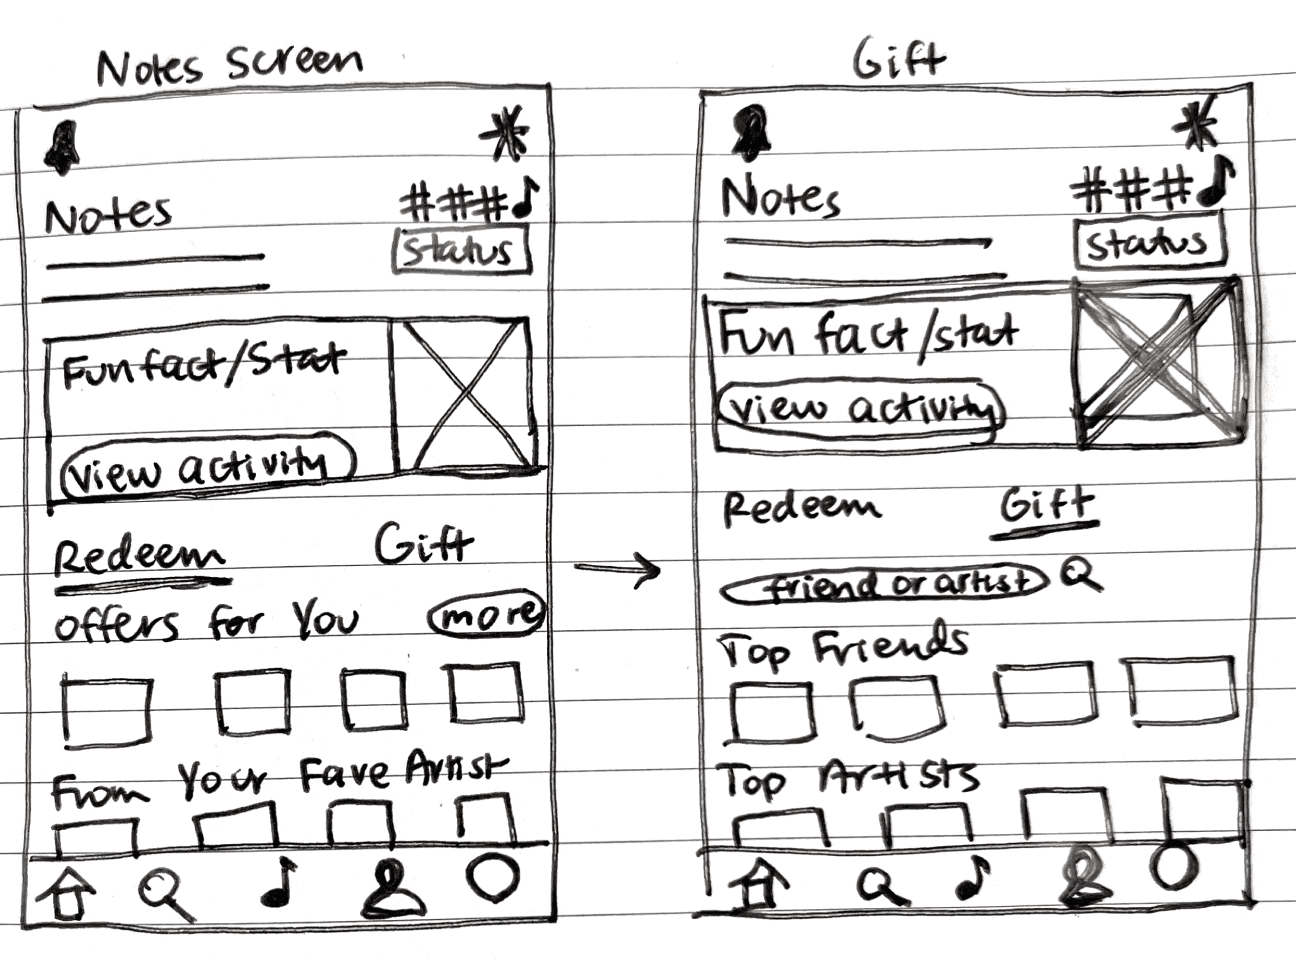 Notes Screen
Notes ###
Status
Fun fact/Stat
view activity
Redeem Gift
offers for You more
From Your Fave Artist
Gift
Notes ###
Status
Fun fact/stat
view activity
Redeem Gift
friend or artist
Top Friends
Top Artists